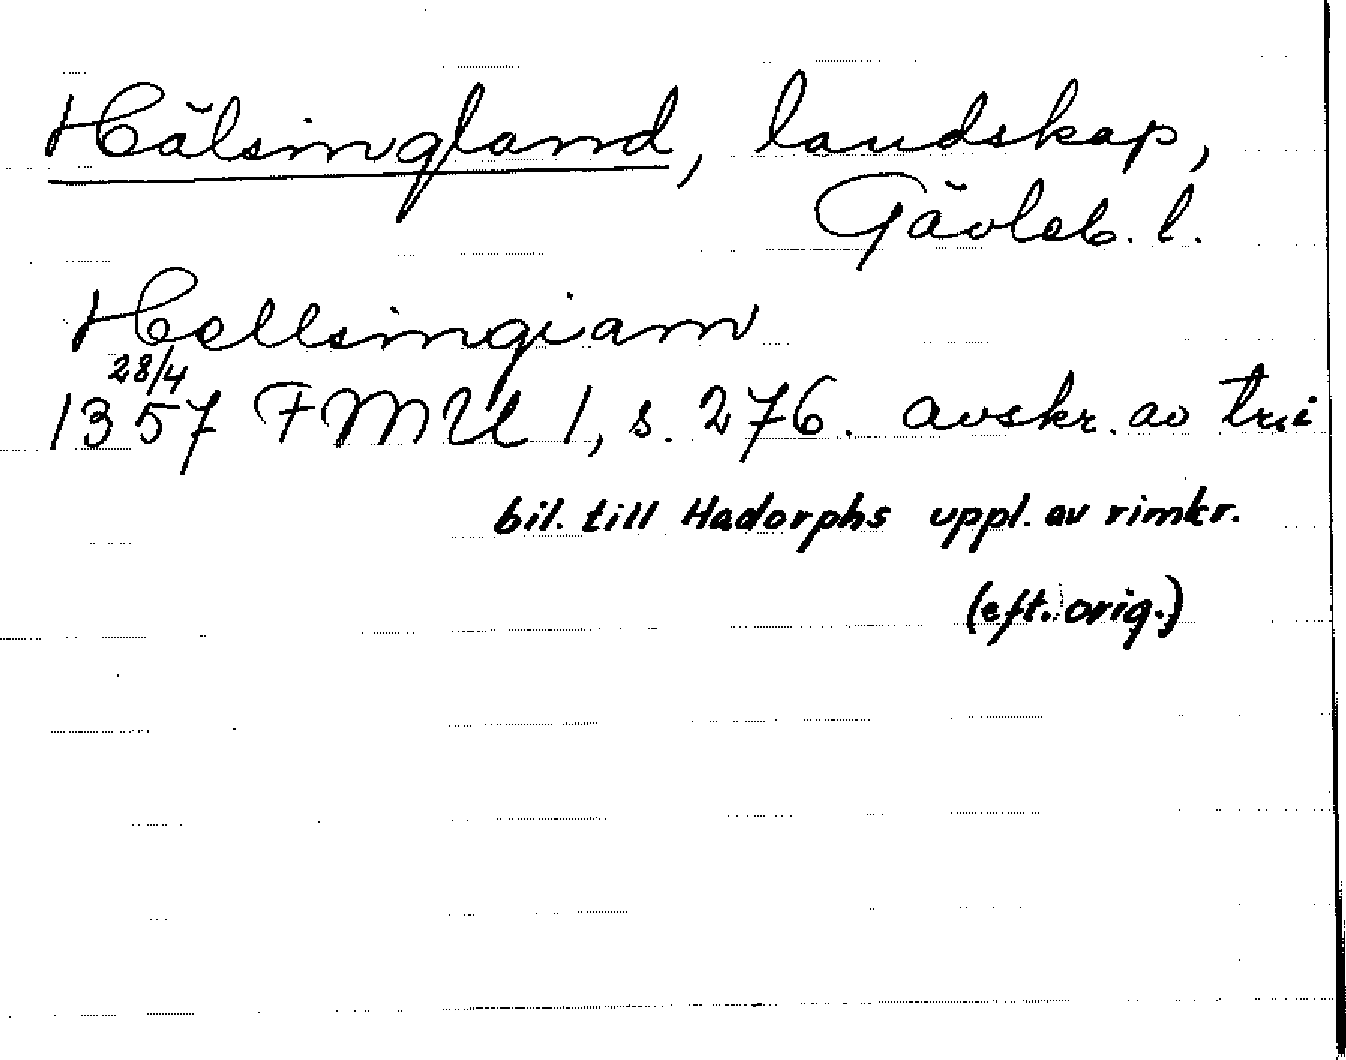 Hälsingland, landskap,
Gävleb. l.
Hellsingiam
28/4
1357 FMU 1, s. 276. avskr. av tr. i
bil. till Hadorphs uppl. av rimkr.
(eft. orig.)